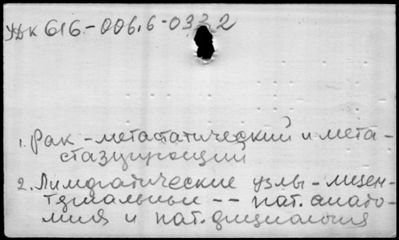 УДК 616-006.6-033.2
1. Рак - метастатический и мета-
стазирующий
2. Лимфатические узлы - мезен-
териальные -- пат. анато-
мия и пат. физиология